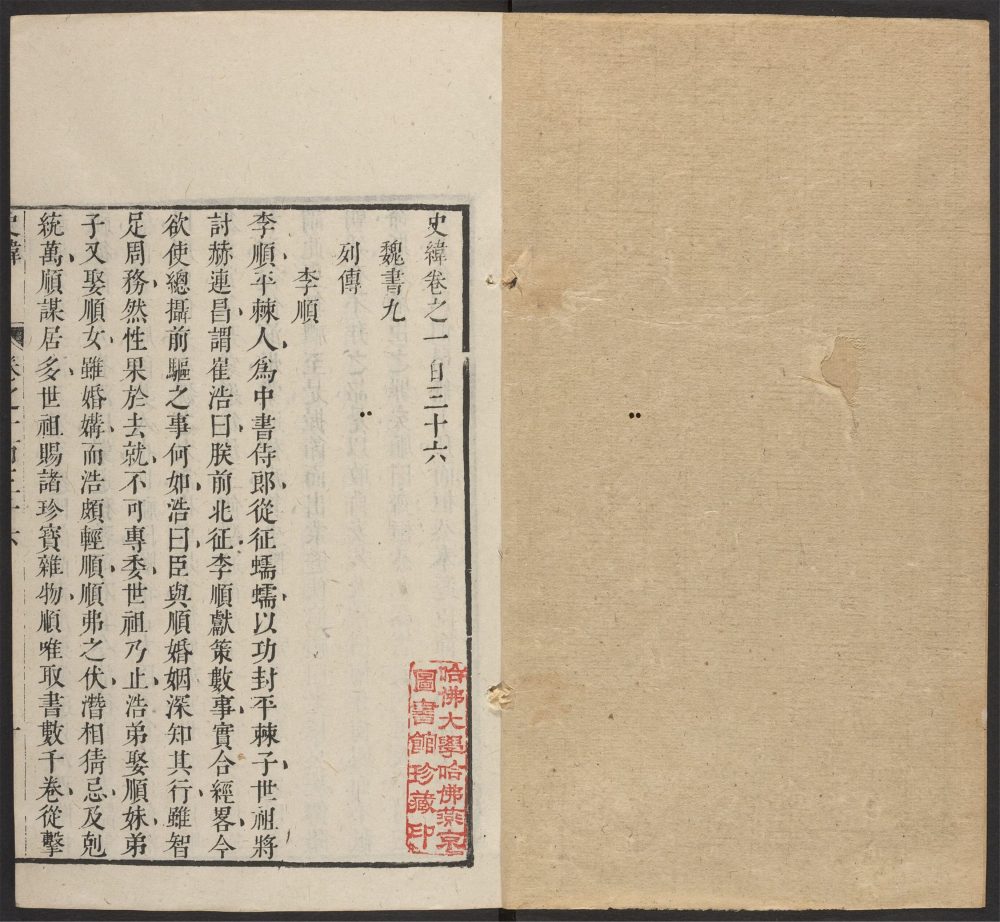 史緯卷之一百三十六
魏書九
列傳
李順
李順平棘人爲中書侍郎從征蠕蠕以功封平棘子世祖將
討赫連昌謂崔浩曰朕前北征李順獻策數事實合經畧今
欲使總攝前驅之事何如浩曰臣與順婚姻深知其行雖智
足周務然性果於去就不可專委世祖乃止浩弟娶順妹弟
子又娶順女雖婚媾而浩頗輕順順弗之伏潛相猜忌及剋
統萬順謀居多世祖賜諸珍寶雜物順唯取書數千卷從擊
史緯 卷之一百三十六 一
哈佛大學哈佛燕京
圖書館珍藏印